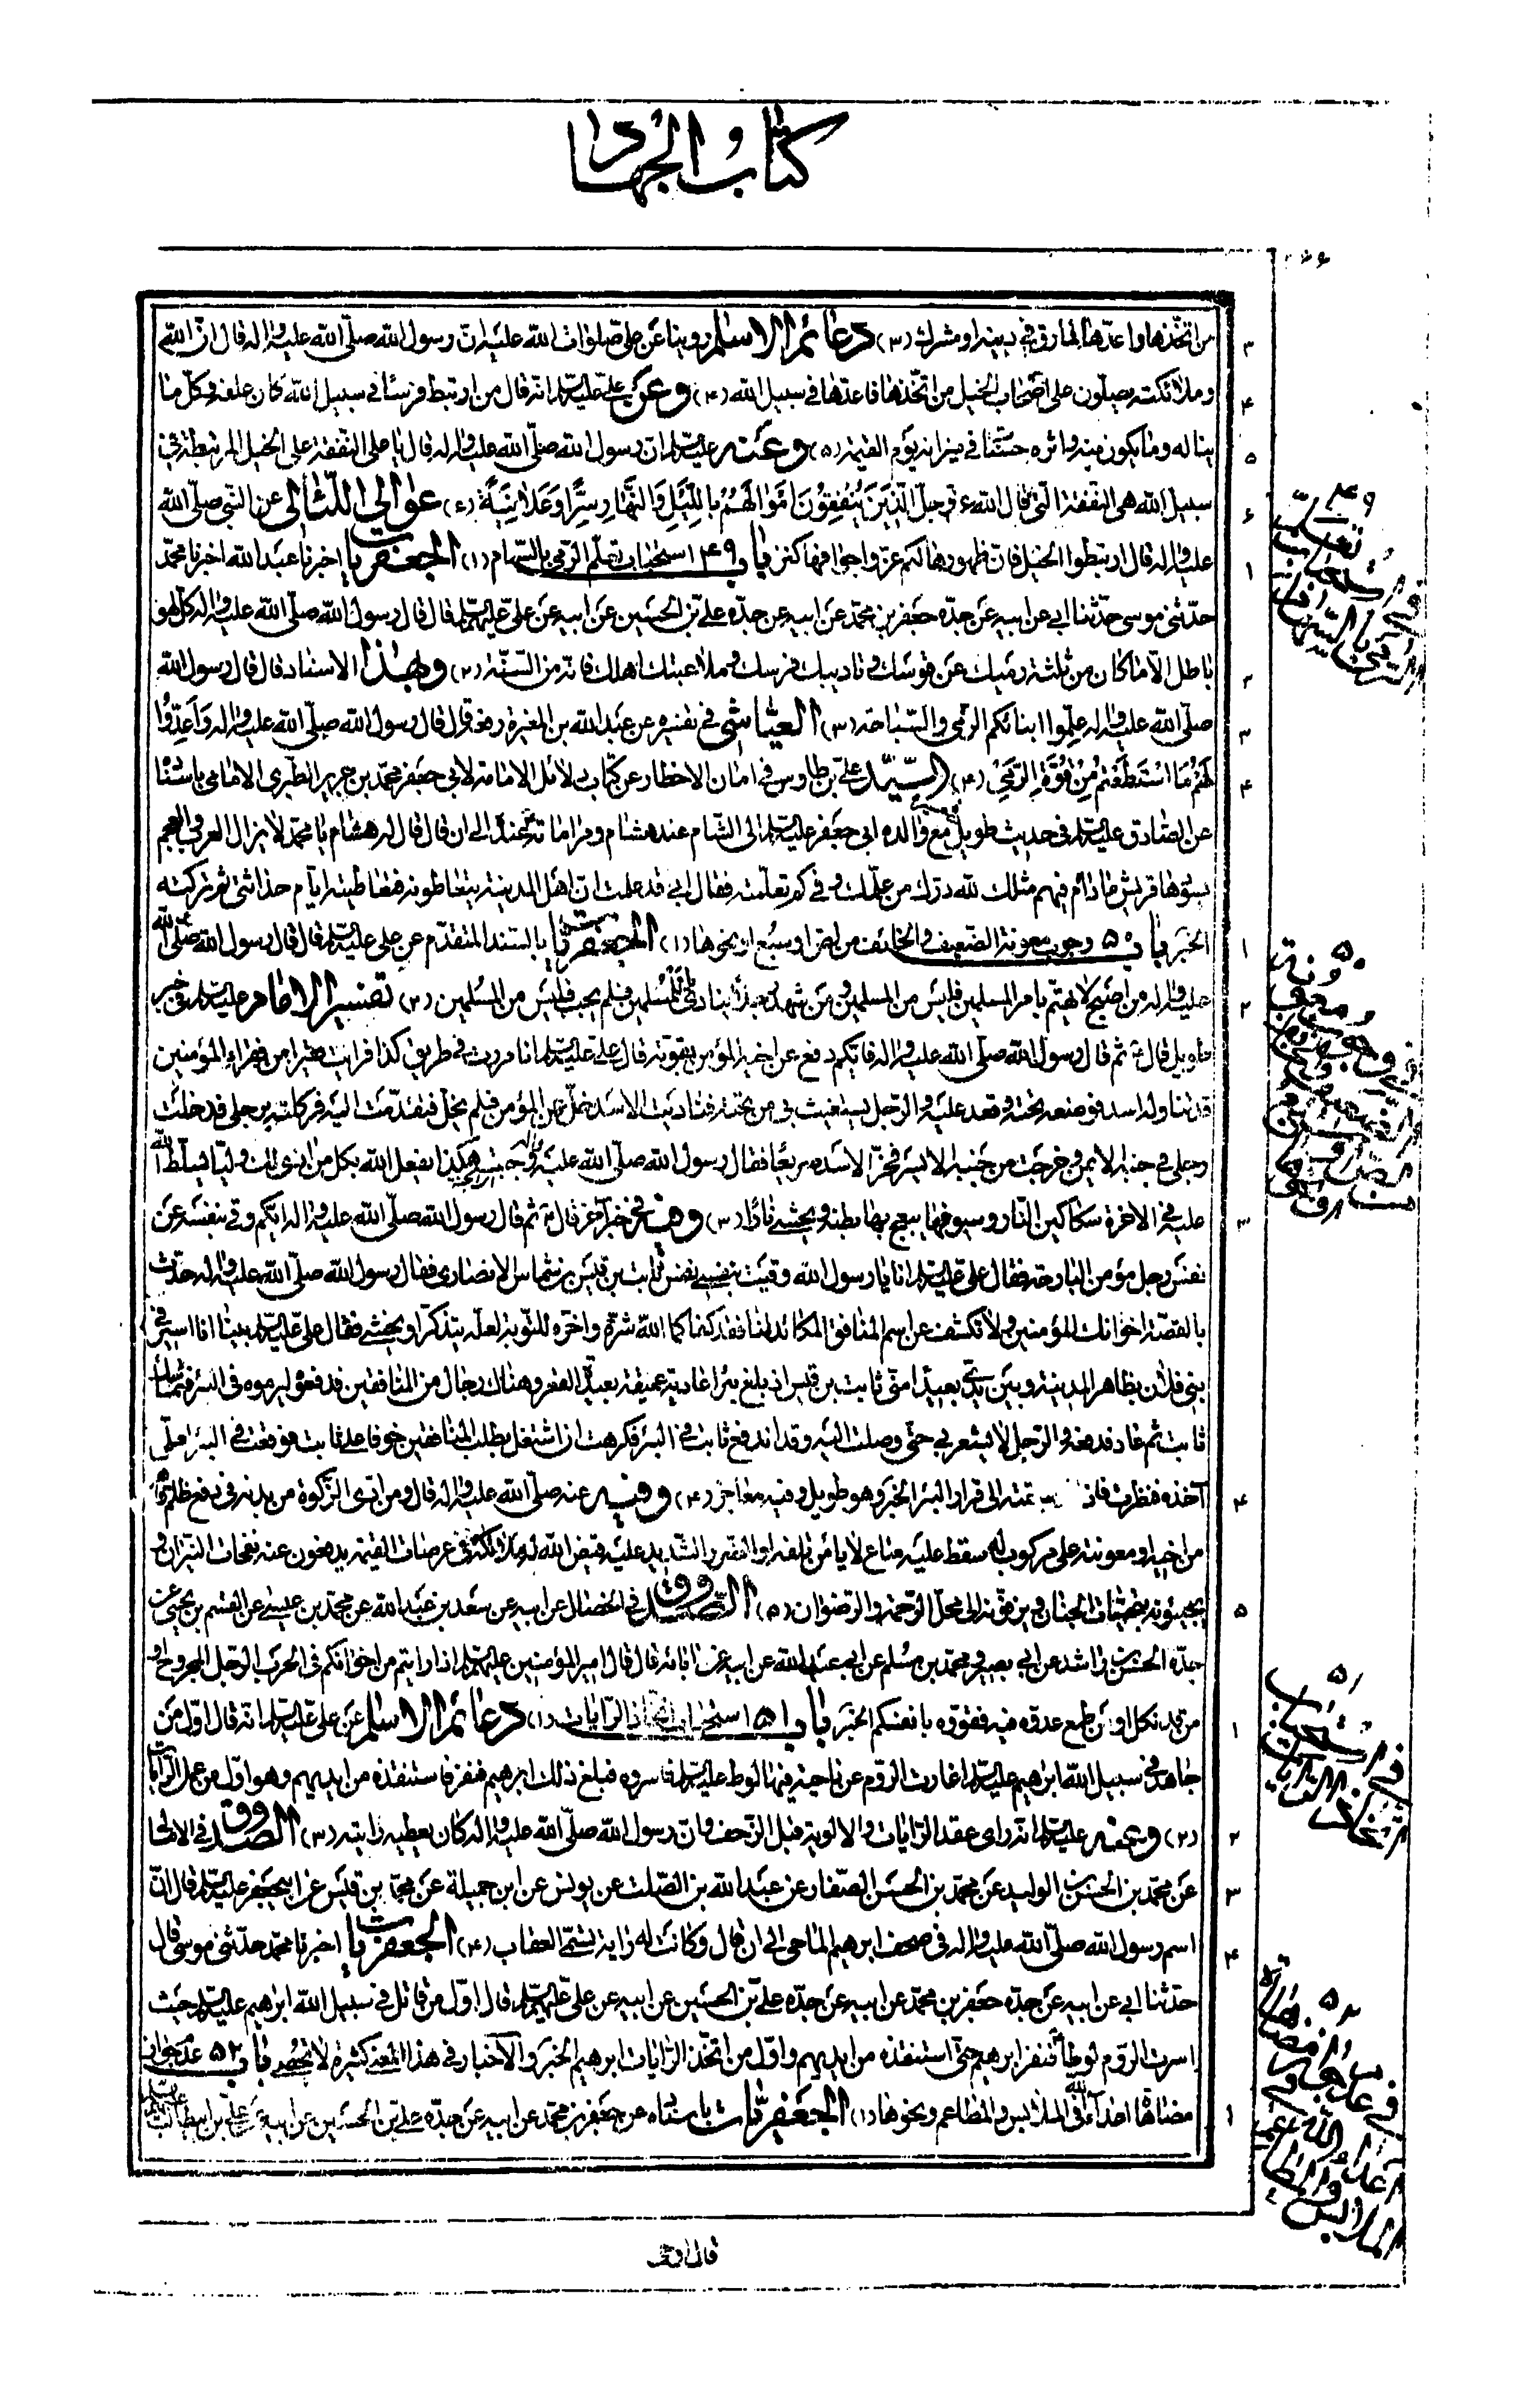 كتاب الجهاد
من اتخذها واعدّها لمارق في دينه او مشرك (٣) دعائم الاسلام روينا عن علي صلوات الله عليه ان رسول الله صلّى الله عليه واله قال انّ الله
وملائكته يصلّون على اصحاب الخيل من اتّخذها فاعدّها في سبيل الله (٤) وعن علي عليه السلام انه قال من ارتبط فرسا في سبيل الله كان علفه وكل ما
يناله وما يكون منه واثره حسنات في ميزانه يوم القيمة (٥) وعنه عليه السلام ان رسول الله صلّى الله عليه واله قال يا علي النفقة على الخيل المرتبطة في
سبيل الله هي النفقة الّتي قال الله عز وجل الَّذِينَ يُنْفِقُونَ اَمْوالَهُمْ بِاللَّيْلِ وَالنَّهارِ سِرًّا وَعَلانِيَةً (٦) عوالي اللئالي عن النبي صلّى الله
عليه واله قال ارتبطوا الخيل فان ظهورها لكم عزّ واجوافها كنز باب ٤٩ استحباب تعلّم الرّمي بالسّهام (١) الجعفريات اخبرنا عبد الله اخبرنا محمّد
حدّثني موسى حدّثنا ابي عن ابيه عن جدّه جعفر بن محمّد عن ابيه عن جدّه علي بن الحسين عن ابيه عن علي عليهم السلام قال قال رسول الله صلّى الله عليه واله كلّ لهو
باطل الّا ما كان من ثلثة رميك عن قوسك وتاديبك فرسك وملاعبتك اهلك فانه من السنّة (٢) وبهذا الاسناد قال قال رسول الله
صلّى الله عليه واله علّموا ابنائكم الرمي والسّباحة (٣) العيّاشي في تفسيره عن عبد الله بن المغيرة رفعه قال قال رسول الله صلّى الله عليه واله وَاَعِدُّوا
لَهُمْ مَا اسْتَطَعْتُمْ مِنْ قُوَّةٍ الرّمي (٤) السيّد علي بن طاوس في امان الاخطار عن كتاب دلائل الامامة لابي جعفر محمّد بن جرير الطبري الامامي باسناده
عن الصّادق عليه السلام في حديث طويل مع والده ابي جعفر عليه السلام الى الشام عند هشام ومراماته عنده الى ان قال قال له هشام يا محمد لا يزال العرب والعجم
يسودها قريش ما دام فيهم مثلك لله درّك من علّمك وفي كم تعلّمته فقال ابي قد علمت ان اهل المدينة يتعاطونه فتعاطيته ايّام حداثتي ثم تركته
الخبر باب ٥٠ وجوب معونة الضّعيف والخائف من لصّ او سبع او نحوها (١) الجعفريات بالسّند المتقدّم عن علي عليه السلام قال قال رسول الله صلّى الله
عليه واله من اصبح لا يهتمّ بامر المسلمين فليس من المسلمين ومن شهد رجلا ينادي يا للمسلمين فلم يجبه فليس من المسلمين (٢) تفسير الامام عليه السلام في خبر
طويل قال ثم قال رسول الله صلّى الله عليه واله فايّكم دفع عن اخيه المؤمن بقوّته قال علي عليه السلام انا مررت في طريق كذا فرايت فقيرا من فقراء المؤمنين
قد تناوله اسد فوضعه تحته وقعد عليه والرّجل يستغيث بي من تحته فناديت الاسد خلّ عن المؤمن فلم يخلّ فتقدّمت اليه فركلته برجلي فدخلت
رجلي في جنبه الايمن وخرجت من جنبه الايسر فخرّ الاسد صريعا فقال رسول الله صلّى الله عليه واله وجبت هكذا يفعل الله بكل من اذى لك وليّا يسلّط الله
عليه في الاخرة سكاكين النّار وسيوفها يبعج بها بطنه ويحشى نارا (٣) وفي خبر اخر قال ثم قال رسول الله صلّى الله عليه واله ايّكم وقى بنفسه عن
نفس رجل مؤمن البارحة فقال علي عليه السلام انا يا رسول الله وقيت بنفسي نفس ثابت بن قيس بن شماس الانصاري فقال رسول الله صلّى الله عليه واله حدّث
بالقصّة اخوانك المؤمنين ولا تكشف عن اسم المنافق المكائد لنا فقد كفاكما الله شرّه واخّره للتّوبة لعلّه يتذكّر او يخشى فقال علي عليه السلام بينا انا اسير في
بني فلان بظاهر المدينة وبين يدي بعيدا مني ثابت بن قيس اذ بلغ بئرا عادية عميقة بعيدة القعر وهناك رجال من المنافقين فدفعوه ليرموه في البئر فتماسك
ثابت ثم عاد فدفعه والرّجل لا يشعر بي حتى وصلت اليه وقد اندفع ثابت في البئر فكرهت ان اشتغل بطلب المنافقين خوفا على ثابت فوقعت في البئر لعلّي
آخذه فنظرت فاذا سبقته الى قرار البئر الخبر وهو طويل وفيه معاجز (٤) وفيه عنه صلّى الله عليه واله قال ومن ادّى الزّكوة من بدنه في دفع ظلم
من اخيه او معونته على مركوب له سقط عليه متاع لا يامن تلفه او الضرر الشّديد عليه قيّض الله له ملائكة في عرصات القيمة يدفعون عنه نفحات النّيران و
يجيئونه بتحيّات الجنان ويزفّونه الى محلّ الرّحمة والرّضوان (٥) الصّدوق في الخصال عن ابيه عن سعد بن عبد الله عن محمد بن عيسى عن القسم بن يحيى عن
جدّه الحسن بن راشد عن ابي بصير ومحمد بن مسلم عن ابي عبد الله عن ابيه عن ابائه قال قال امير المؤمنين عليه السلام اذا رايتم من اخوانكم في الحرب الرّجل المجروح او
من قد نكل او من طمع عدوّه فيه فقوّوه بانفسكم الخبر باب ٥١ استحباب اتخاذ الرّايات (١) دعائم الاسلام عن علي عليه السلام انه قال اوّل من
جاهد في سبيل الله ابراهيم عليه السلام اغارت الرّوم على ناحية فيها لوط عليه السلام فاسروه فبلغ ذلك ابرهيم فنفر فاستنقذه من ايديهم وهو اوّل من عمل الرّايات
(٢) وعنه عليه السلام انه راى عقد الرّايات والالوية قبل الزّحف وان رسول الله صلّى الله عليه واله كان يعطيه رايته (٣) الصّدوق في الامالي
عن محمّد بن الحسن بن الوليد عن محمّد بن الحسن الصّفار عن عبد الله بن الصّلت عن يونس عن ابن حميد عن محمّد بن قيس عن ابي جعفر عليه السلام قال انّ
اسم رسول الله صلّى الله عليه واله في صحف ابرهيم الماحي الى ان قال وكانت له راية تسمّى العقاب (٤) الجعفريات اخبرنا محمد حدّثني موسى قال
حدّثنا ابي عن ابيه عن جدّه جعفر بن محمّد عن ابيه عن جدّه علي بن الحسين عن ابيه عن علي عليهم السلام قال اوّل من قاتل في سبيل الله ابراهيم عليه السلام حيث
اسرت الرّوم لوطا فنفر ابرهيم حتى استنقذه من ايديهم واوّل من اتّخذ الرّايات ابرهيم الخبر والاخبار في هذا المعنى كثيرة لا تحصى باب ٥٢ عدم جواز
مضاهاة اعداء الله في الملابس والمطاعم ونحوها (١) الجعفريّات باسناده عن جعفر بن محمّد عن ابيه عن جدّه علي بن الحسين عن ابيه عن علي بن ابي طالب
٤٩
في استحباب
٥٠
٥١
في استحباب
اتخاذ الرّايات
٥٢
اعداء الله